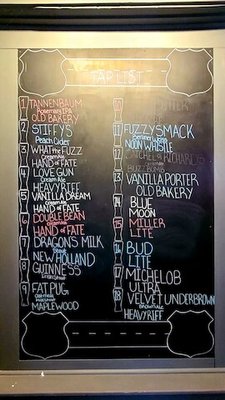 TAP LIST
1 TANNENBAUM
Rosemary IPA
OLD BAKERY
2 STIFFYS
Peach Cider
3 WHAT THE FUZZ
Cream Ale
HAND OF FATE
4 LOVE GUN
Cream Ale
HEAVY RIFF
5 VANILLA DREAM
Cream Ale
HAND OF FATE
6 DOUBLE BEAN
HAND OF FATE
7 DRAGONS MILK
Stout
NEW HOLLAND
8 GUINNESS
Irish Stout
9 FAT PUG
Oatmeal
MAPLEWOOD
10
11 FUZZYSMACK
NOON WHISTLE
12
BUZZ BOMB
13 VANILLA PORTER
OLD BAKERY
14 BLUE
MOON
15 MILLER
LITE
16 BUD
LITE
17 MICHELOB
ULTRA
18 VELVET UNDERBROWN
Brown Ale
HEAVY RIFF